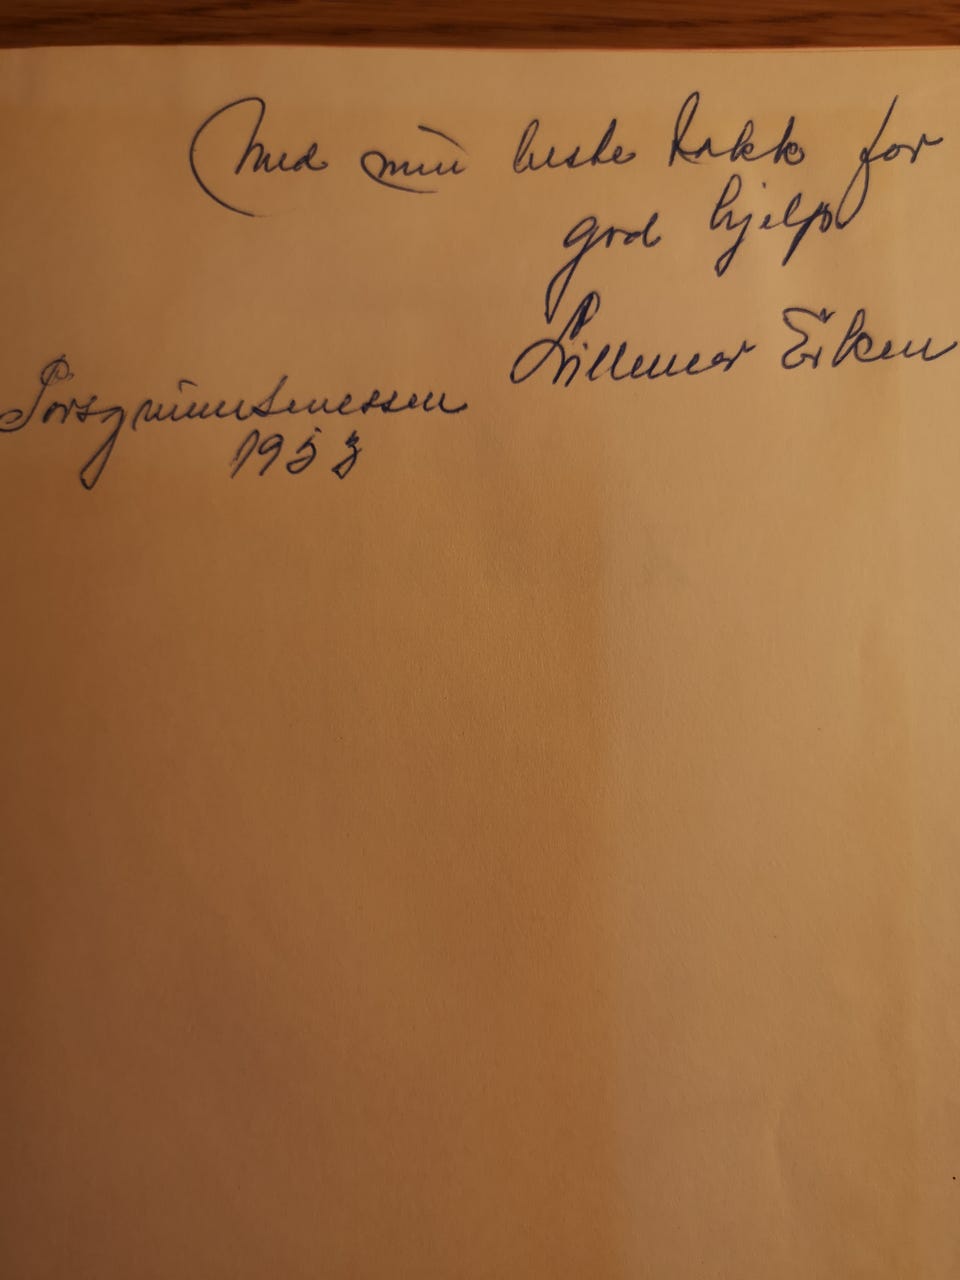 Med min beste takk for
god hjelp
Lillemor Erken
Porsgrunnsmessen
1953